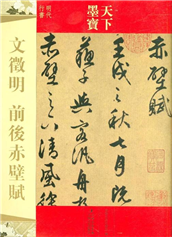 天下
墨寶
明代
行書
文徵明 前後赤壁賦
赤壁賦
壬戌之秋七月既
蘇子與客汎舟
赤壁之下清風徐